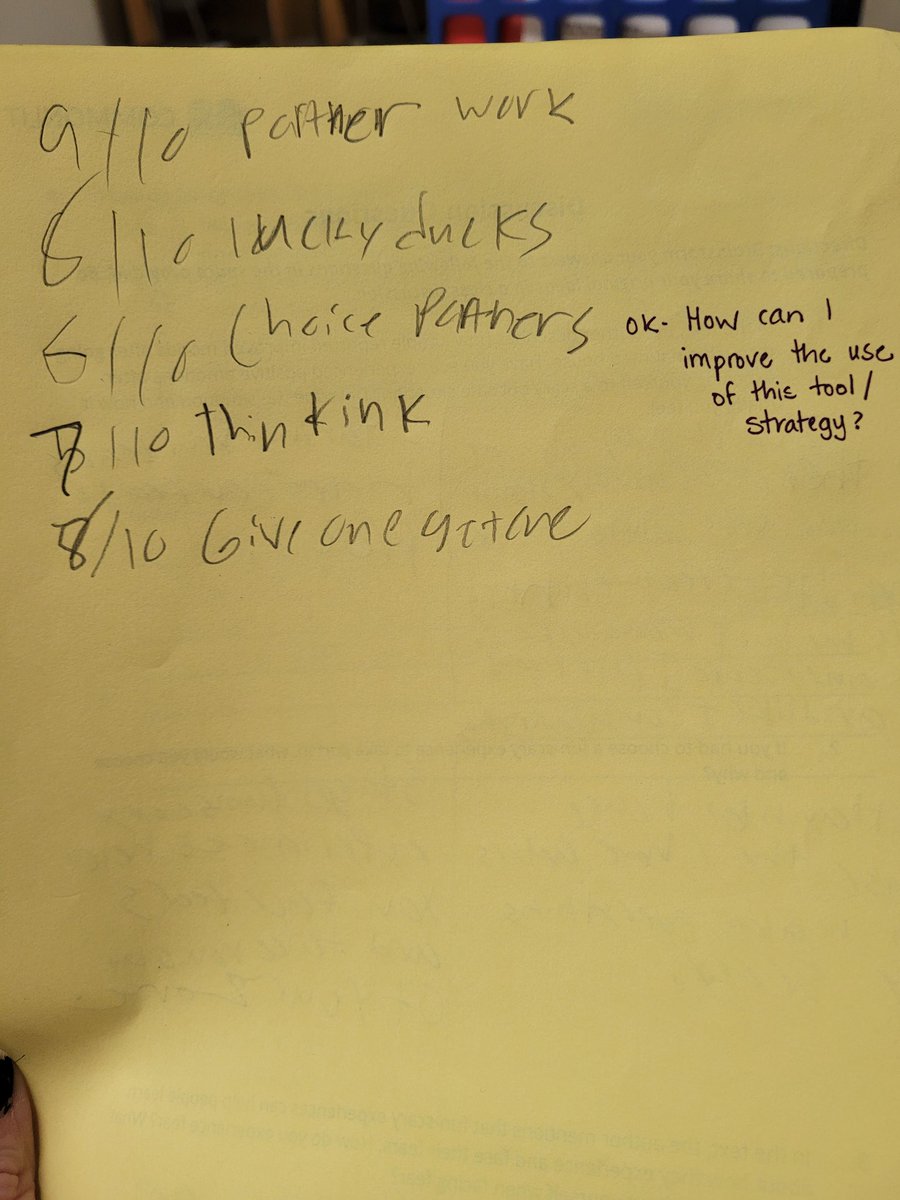 9/10 partner work
8/10 lucky ducks
6/10 Choice Partners
OK- How can I
improve the use
of this tool/
strategy?
7/10 thinkink
8/10 Give one get one